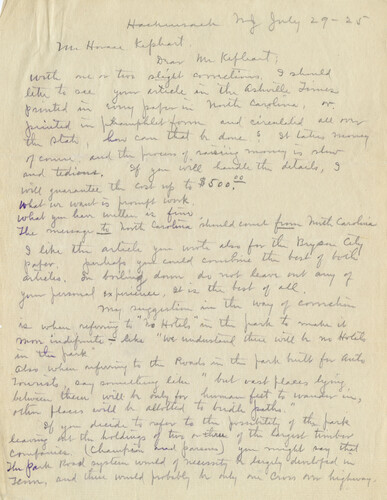 Hackensack NJ July 29-25
Mr. Horace Kephart.
Dear Mr Kephart;
With one or two slight corrections, I should
like to see your article in the Asheville Times
printed in every paper in North Carolina, or
printed in pamphlet form and circulated all over
the State, how can that be done? It takes money
of course, and the process of raising money is slow
and tedious. If you will handle the details, I
will guarantee the cost up to $500.00
What we want is prompt work.
What you have written is fine
The message to North Carolina should come from North Carolina
I like the article you wrote also for the Bryson City
paper. perhaps you could combine the best of both
articles. In boiling down do not leave out any of
your personal experience, It is the best of all.
My suggestion in the way of correction
is when referring to "no Hotels" in the park to make it
more indefinite - like "We understand there will be no Hotels
in the park"
also when referring to the Roads in the park built for Auto
Tourists, say something like "but vast places lying
between these will be only for human feet to wander in,
other places will be allotted to bridle paths"
If you decide to refer to the possibility of the park
leaving out the holdings of two or three of the largest timber
companies, (Champion and parsons) you might say that
The park Road system would of necessity be largely developed in
Tenn, and there would probably be only one Cross over highway.